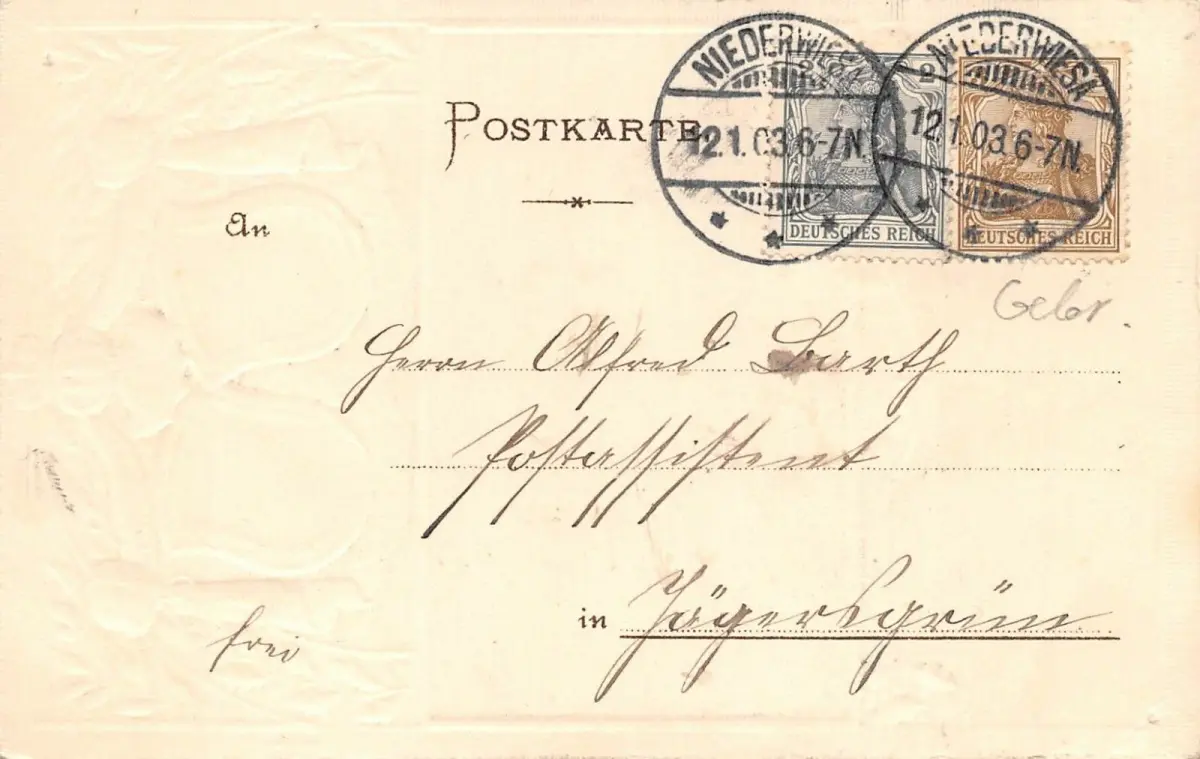 POSTKARTE.
NIEDERWIESA
12.1.03.6-7N.
NIEDERWIESA
12.1.03.6-7N.
2
DEUTSCHES REICH
DEUTSCHES REICH
An
Gebr.
Herrn Alfred Barth
Postassistent
in Jägersgrün
frei